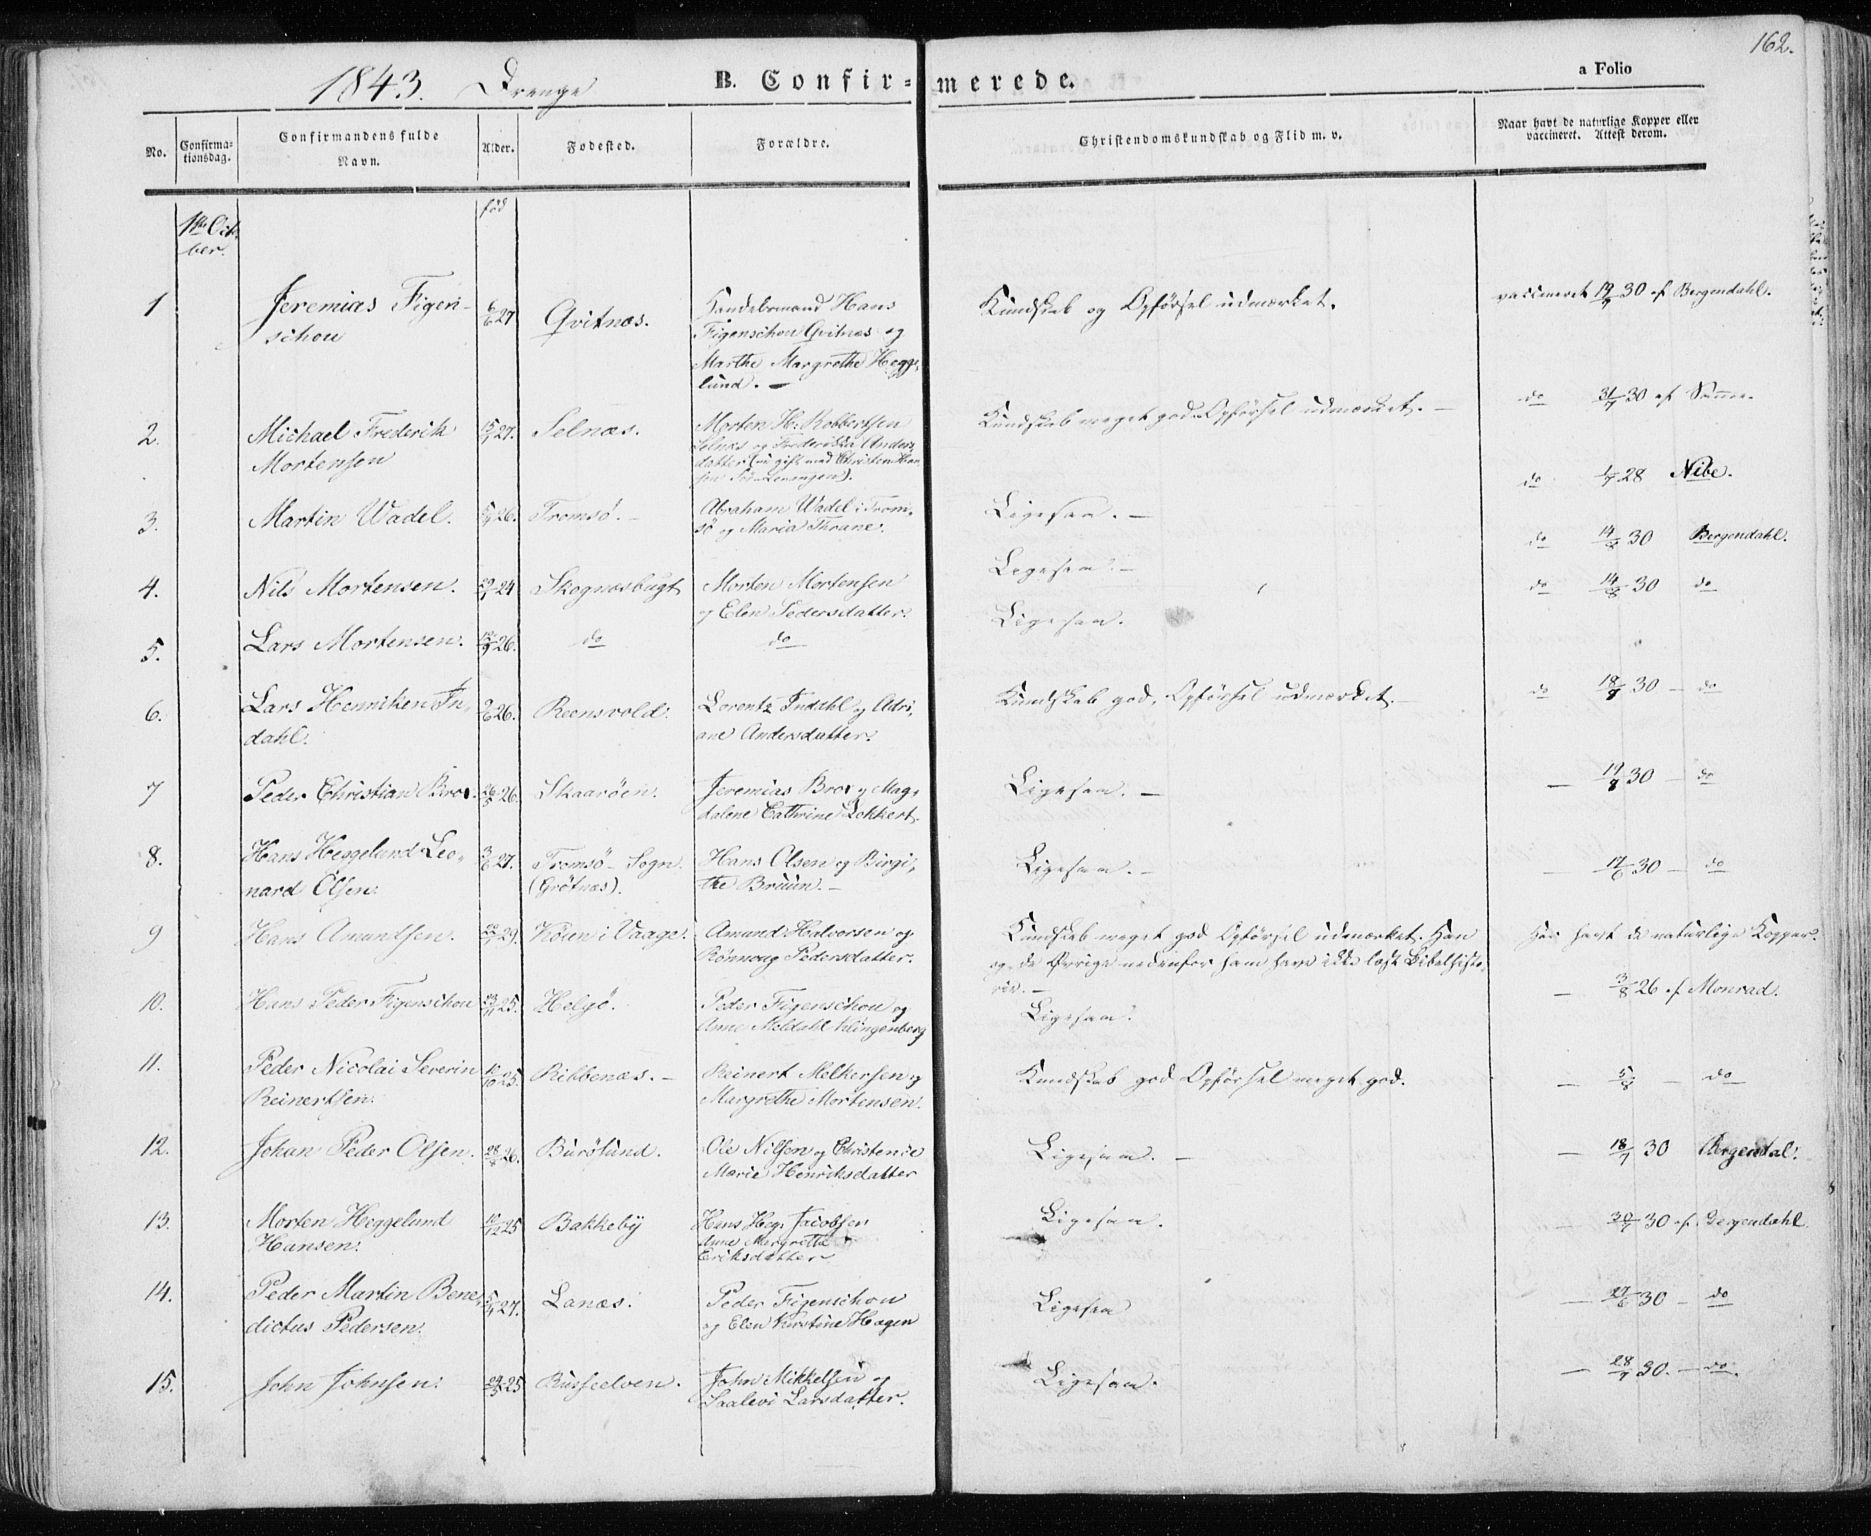 162.
1843. Drenge B. Confirmerede. a Folio
No. Confirmationsdag. Confirmandens fulde Navn. Alder. Fødested. Forældre. Christendomskundskab og Flid m. v. Naar havt de naturlige Kopper eller vaccineret. Attest derom.
1ste October. født
1 Jeremias Figenschou 6/6 27 Qvitnæs. Handelsmand Hans Figenschou Qvitnæs og Marthe Margrethe Heggelund. — Kundskab og Opførsel udmærket. vaccineret 19/7 30 af Bergendahl.
2. Michael Frederik Mortensen 27. Selnæs. Morten H: Robbertsen Selnæs og Frederikka Andersdatter (nu gift med Christen Hansen). Kundskab meget god. Opførsel udmærket. — do 31/7 30 af Samme.
3. Martin Wadel. 26. Tromsö. — Abraham Wadel i Tromsö og Maria Thrane. Ligesaa. — do 1/7 28 Nibe.
4. Nils Mortensen. 24 Skognæsbugt Morten Mortensen og Elen Pedersdatter. Ligesaa. — do 14/8 30 Bergendahl.
5. Lars Mortensen. 26. do do Ligesaa. do 14/8 30 do
6. Lars Henriken Indahl. 26. Reensvold. Lorentz Indahl og Adriane Andersdatter. Kundskab god, Opførsel udmærket. — do 18/8 30 — do
7 Peder Christian Brox. 26. Skaaröen. Jeremias Brox og Magdalene Cathrine Lokkert. Ligesaa. — — 19/8 30 — do
8. Hans Heggelund Leonard Olsen. 3/6 27. Tromsö Sogn. (Grötnæs). Hans Olsen og Birgithe Bruun. — Ligesaa. — — 17/6 30 — do
9 Hans Amuntsen. 29. i Vaage. Amund Halvorsen og Rönnoug Pedersdatter. Kundskab meget god Opførsel udmærket. Han og de Øvrige nedenfor ham have ikke læst Bibelhistorie. — Har havt de naturlige Kopper.
10. Hans Peder Figenschou 25. Helgö. Peder Figenschou og Anne Meldahl Klingenberg Ligesaa. — 3/8 26 af Monrad.
11. Peder Nicolai Severin Reinertsen. 25. Ribbenæs. — Reinert Melkersen og Margrethe Mortensen. Kundskab god Opførsel meget god. — 5/8 — do
12. Johan Peder Olsen. 26. Burösund. Ole Nilsen og Christence Marie Henriksdatter Ligesaa. — — 18/7 30 Bergendal.
13. Morten Heggelund Hansen. 25 Bakkeby Hans Heg: Jacobsen Anne Margretta Eriksdatter Ligesaa. — 30/7 30 af Bergendahl
14. Peder Martin Benedictus Pedersen. 27. Lanæs. Peder Figenschou og Elen Kirstine Hagen Ligesaa — 27/6 30 — do
15. John Johnsen. 25 Russeelven. John Mikkelsen og Saalevi Larsdatter. Ligesaa. — 28/7 30. — do.